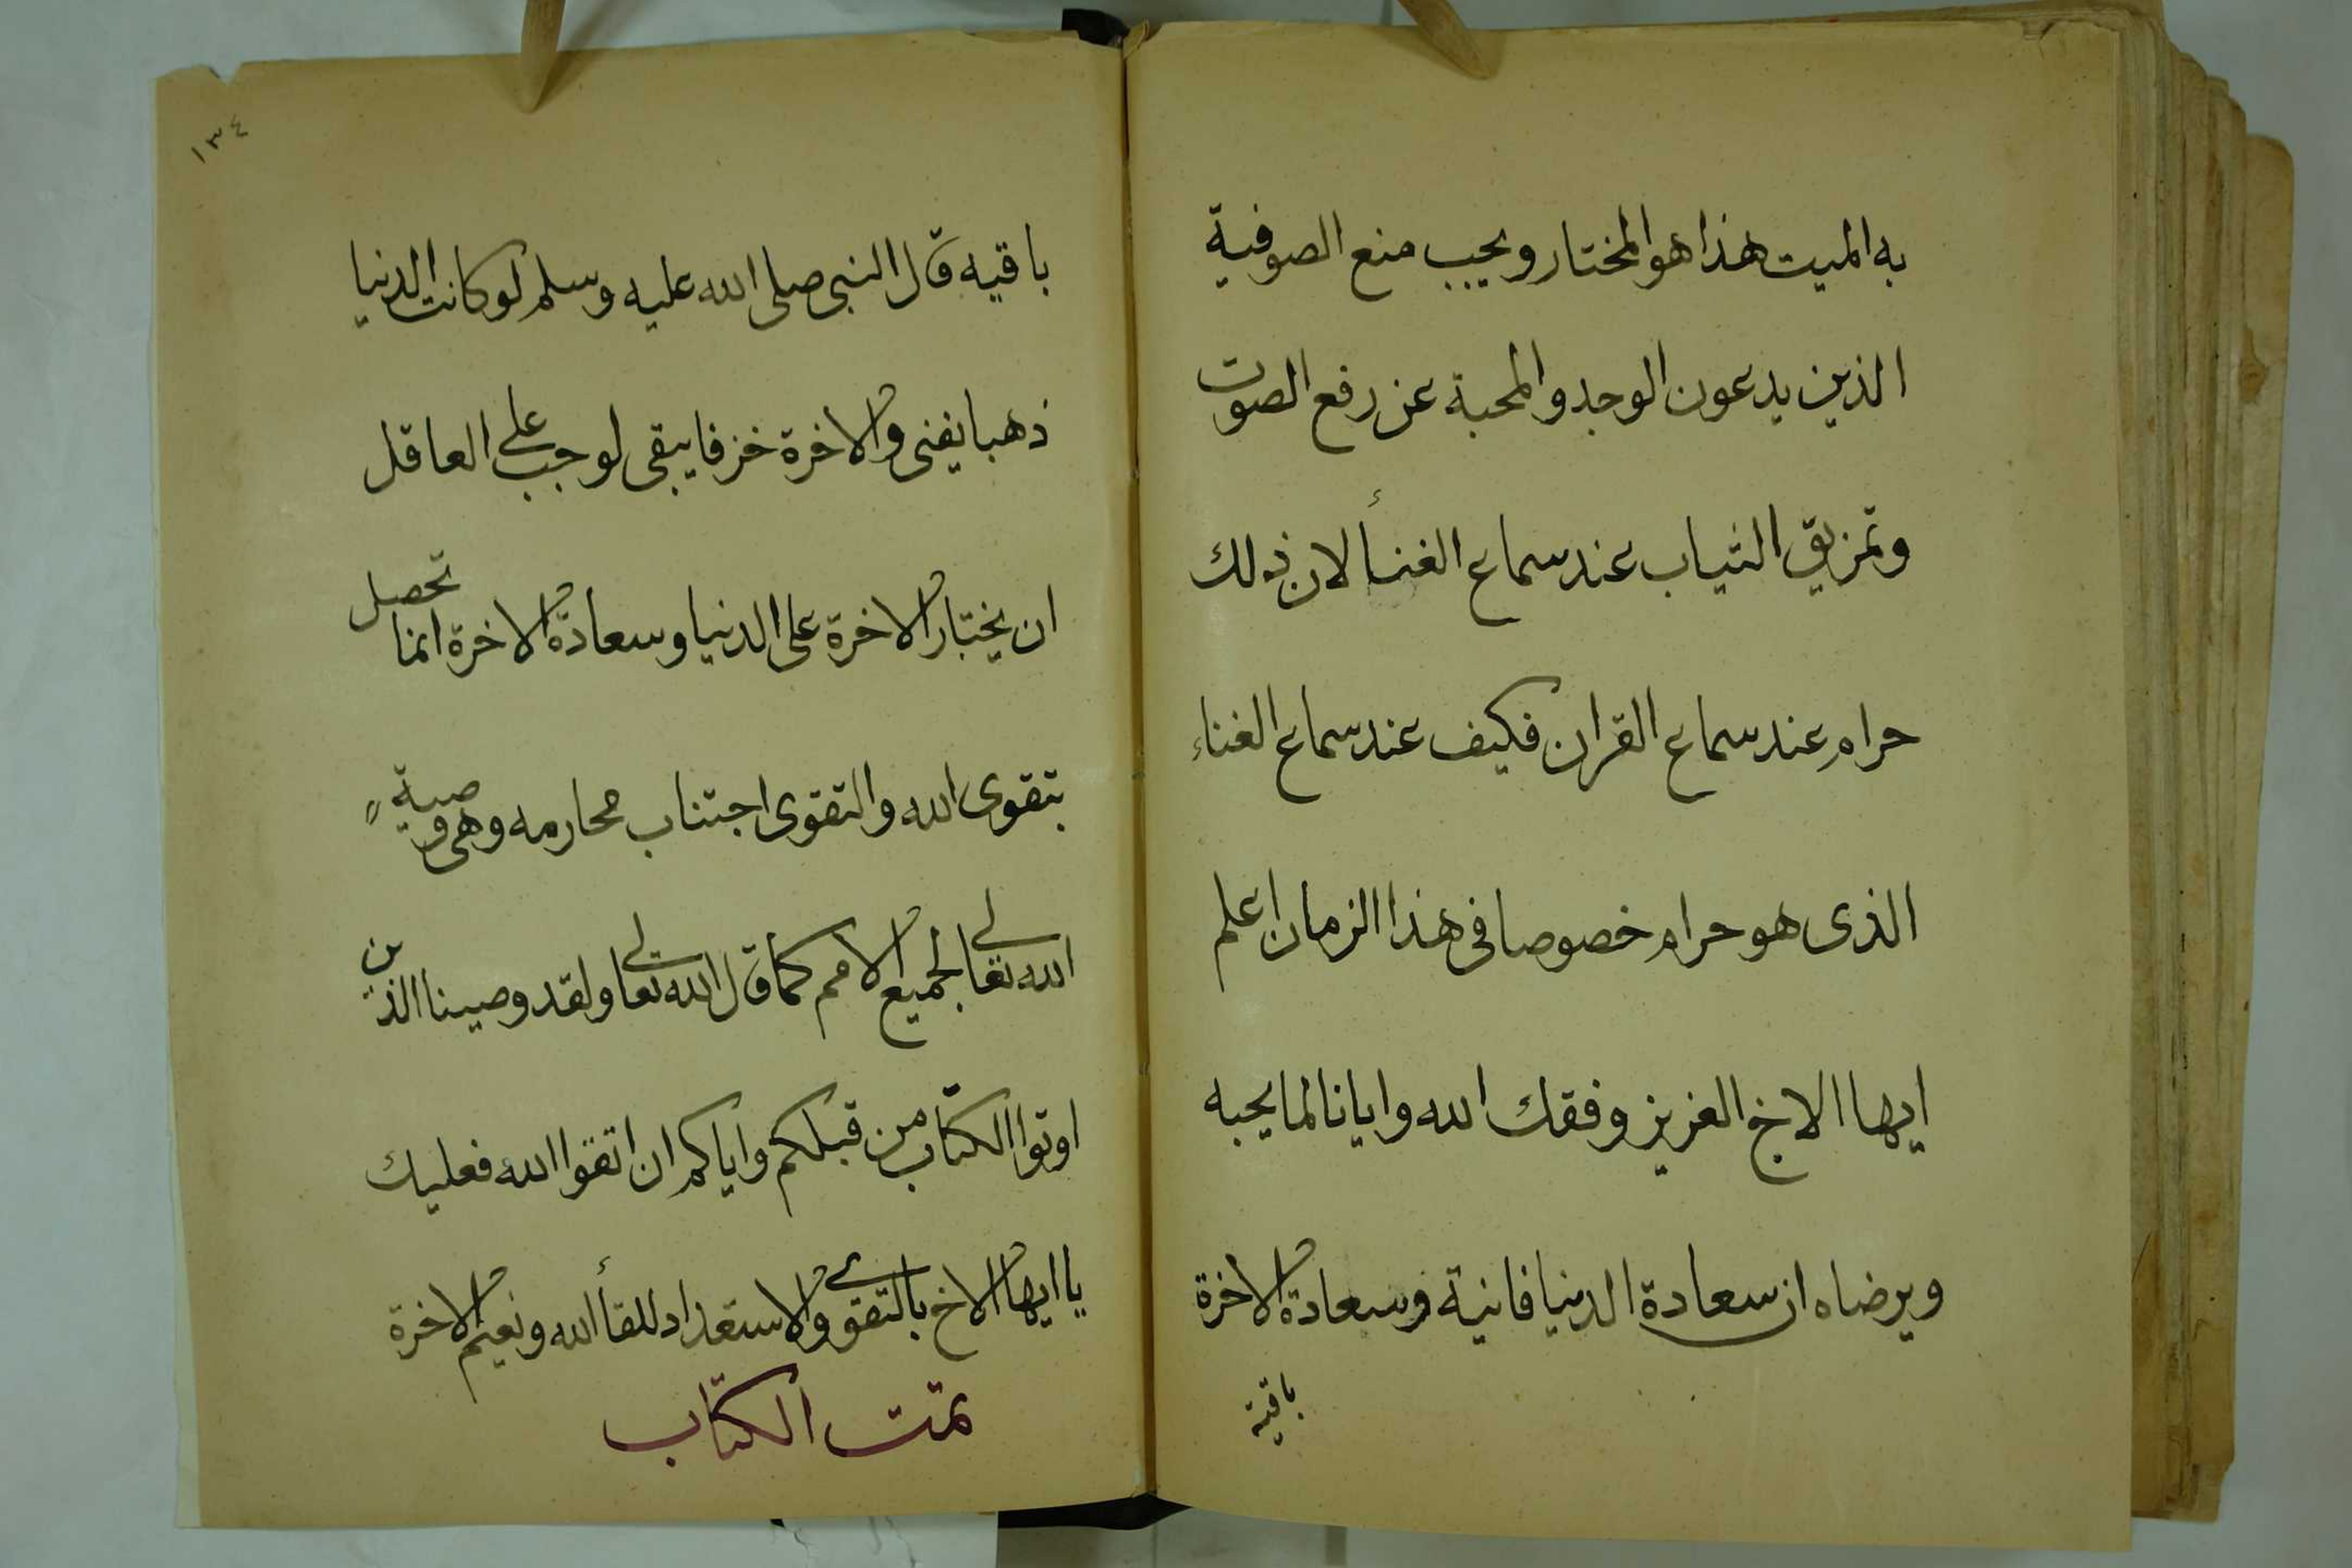 به الميت هذا هو المختار ويجب منع الصوفية
الذين يدعون الوجد والمحبة عن رفع الصوت
وتمزيق الثياب عند سماع الغنأ لان ذلك
حرام عند سماع القران فكيف عند سماع الغناء
الذى هو حرام خصوصا فى هذا الزمان اعلم
ايها الاخ العزيز وفقك الله وايانا لما يحبه
ويرضاه ان سعادة الدنيا فانية وسعادة الاخرة
باقية
١٣٤
باقيه قال النبى صلى الله عليه وسلم لو كانت الدنيا
ذهبا يفنى والاخرة خزفا يبقى لوجب على العاقل
ان يختار الاخرة على الدنيا وسعادة الاخرة انما تحصل
بتقوى الله والتقوى اجتناب محارمه وهى وصية
الله تعالى لجميع الامم كما قال الله تعالى ولقد وصينا الذين
اوتوا الكتاب من قبلكم واياكم ان اتقوا الله فعليك
يا ايها الاخ بالتقوى والاستعداد للقأ الله ونعيم الاخرة
تمت الكتاب